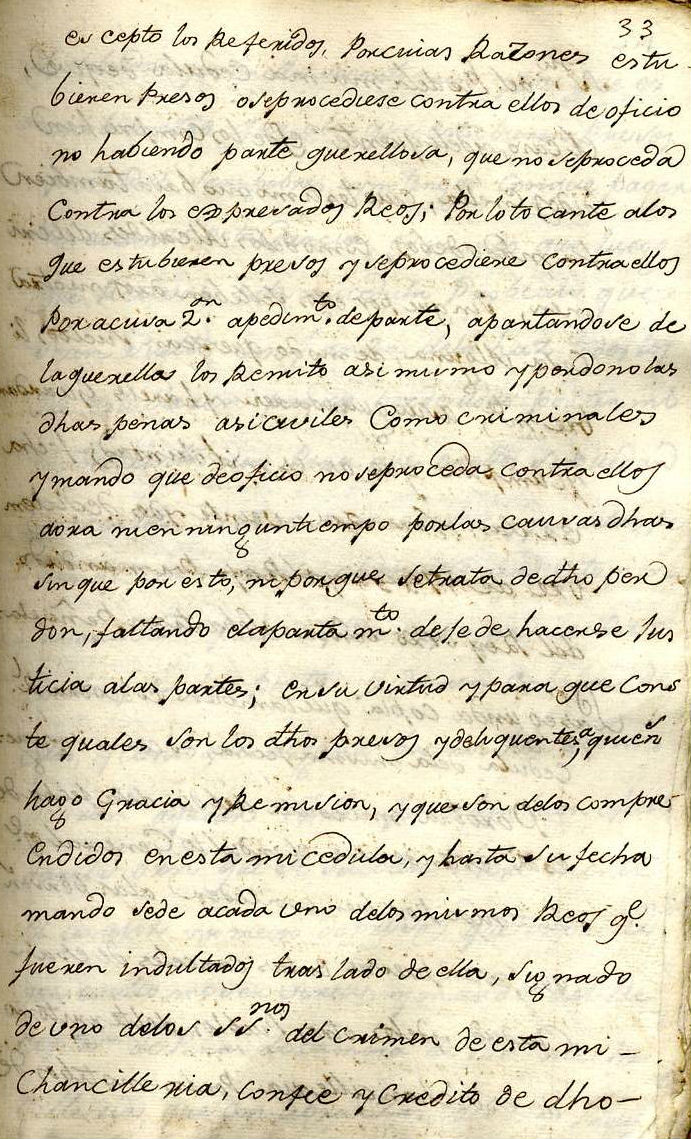 33
es cepto los Referidos, Porcuias Razones estu-
bieren Presos o seprocediese contra ellos de oficio
no habiendo parte querellosa, que no seproceda
Contra los expresados Reos; Por lo to cante alos
que estubieren presos y seprocediere contra ellos
Por acusa 2.on apedim.to departe, apartandose de
laquerella los Remito asi mismo y perdono las
dhas penas asi civiles Como criminales
y mando que deoficio no seproceda contra ellos
aora ni en ningun tiempo por las causas dhas
sin que por esto, ni porque setrata de dho per
don, faltando el aparta m.to dejede hacerse Jus
ticia alas partes; en su virtud y para que Cons
te quales son los dhos presos y delinquentes, a quien s
hago Gracia y Remision, y que son delos compre-
endidos en esta mi cedula, y hasta su fecha
mando sede acada uno delos mismos Reos q.e
fueren indultados tras lado de ella, signado
de uno delos SS.nos del crimen de esta mi-
Chancilleria, confee y Credito de dho-